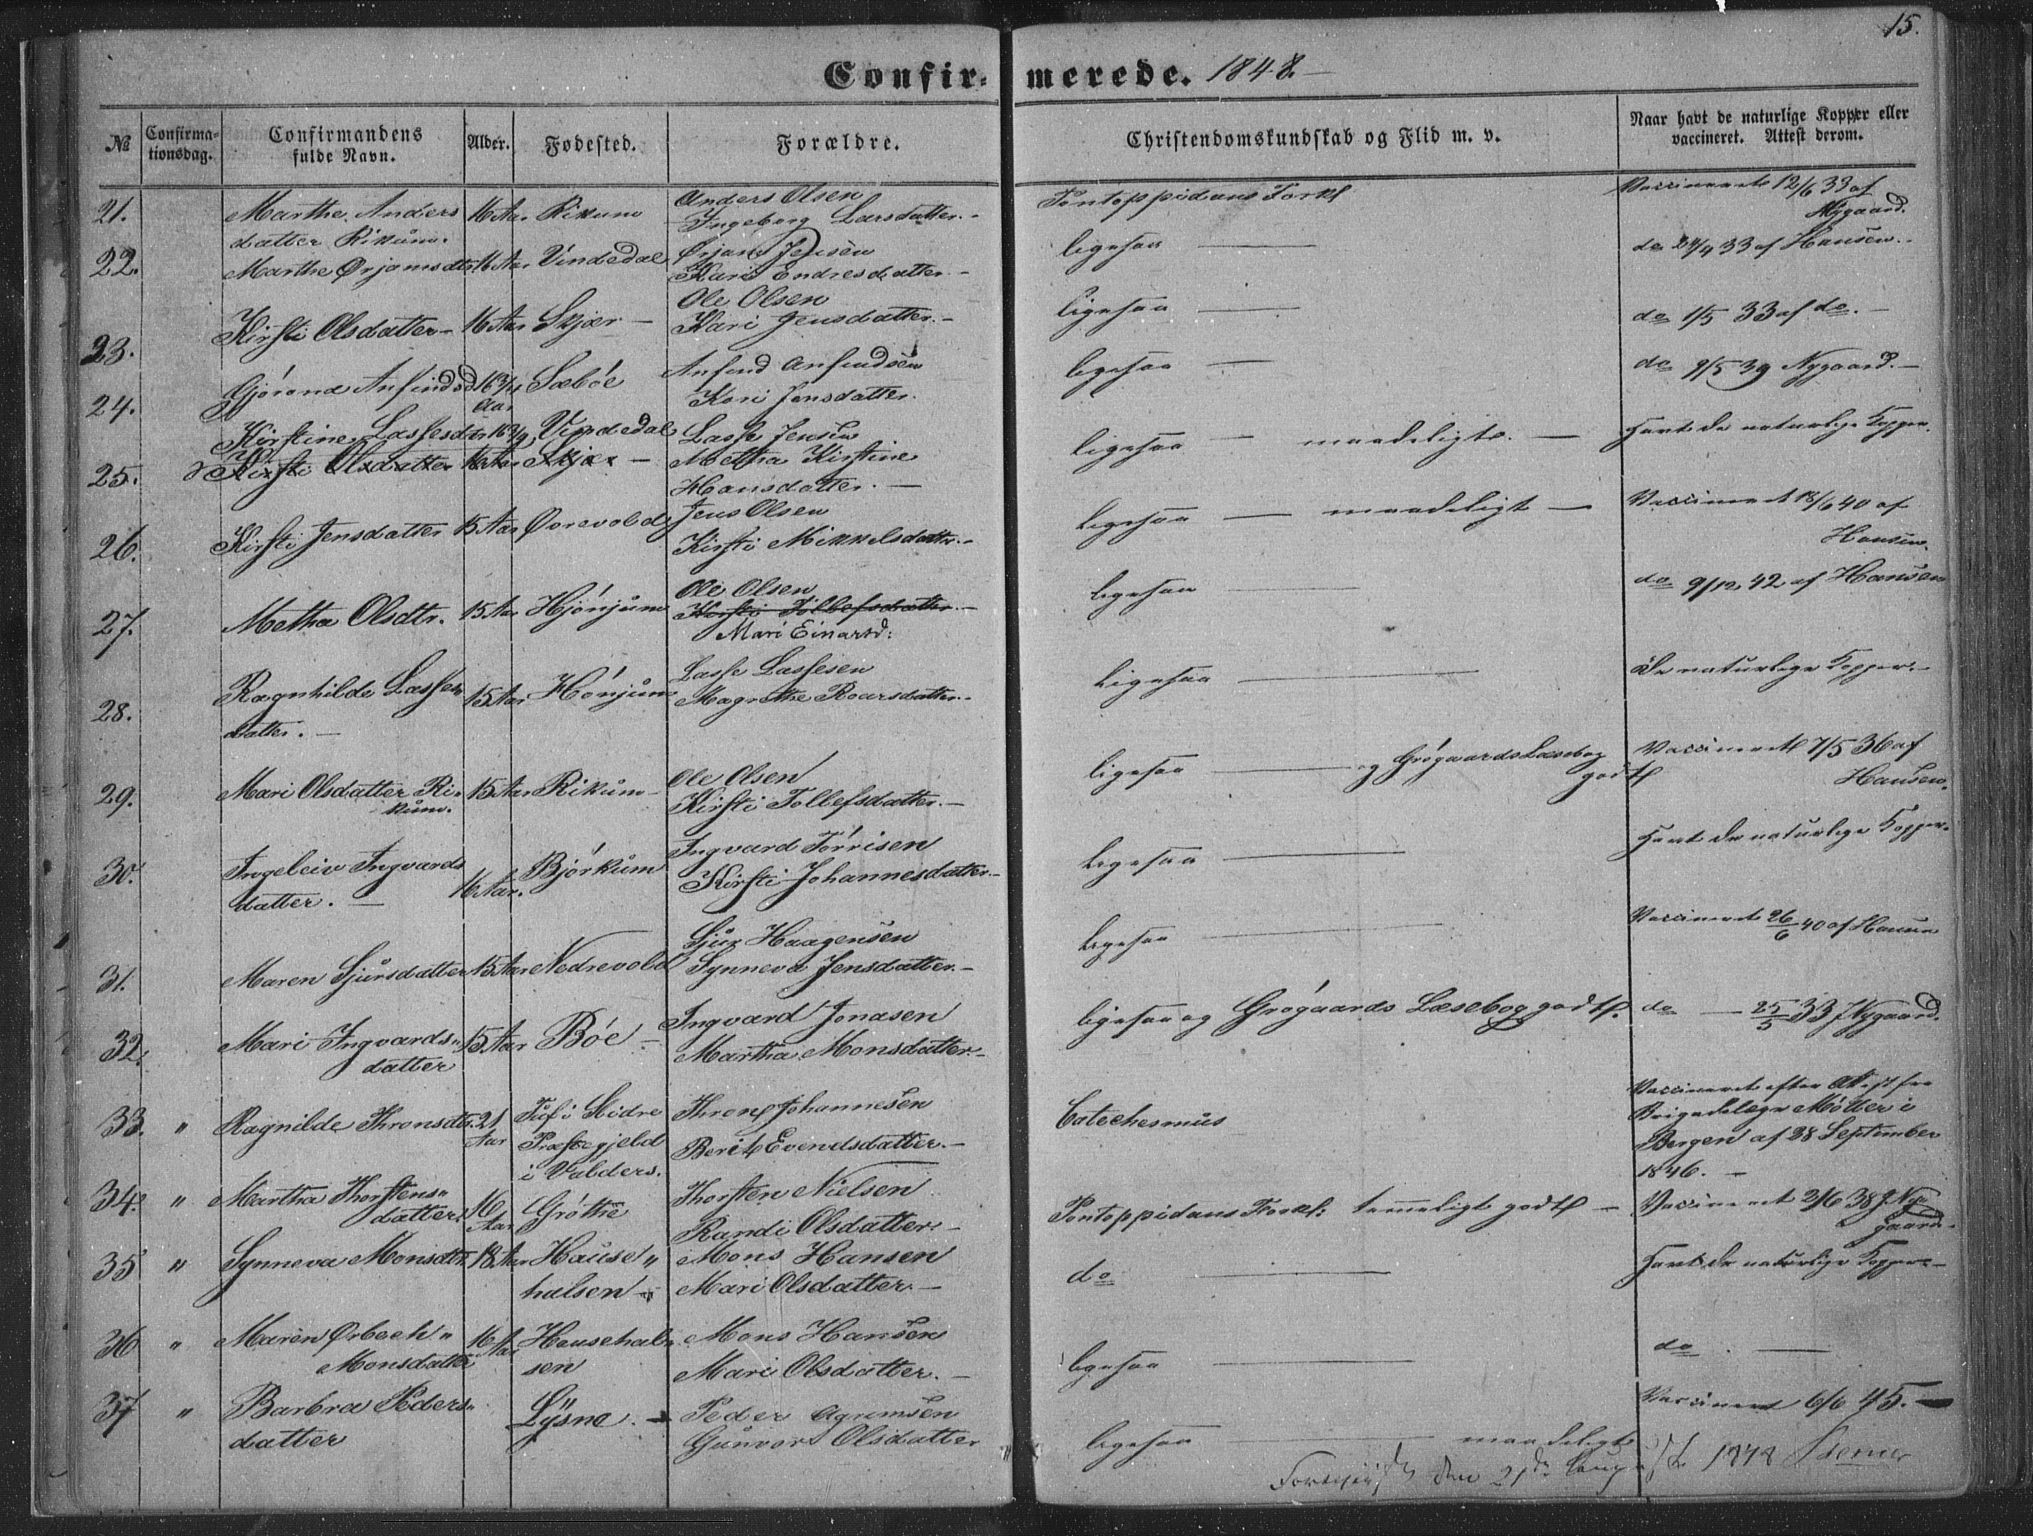 15.
Confirmerede. 1848.
№ Confirmationsdag. Confirmandens fulde Navn. Alder. Fødested. Forældre. Christendomskundskab og Flid m. v. Naar havt de naturlige Kopper eller vaccineret. Attest derom.
21. Marthe Anders 16 Aar Rikum Anders Olsen Pontoppidans Forkl Vaccineret 12/6 33 af
datter Rikum. Ingeborg Larsdatter. Nygaard.
22. Marthe Ørjansdtr 16 Aar Vindedal Ørjans Jensen ligesaa do 24/4 33 af Hansen.
Kari Endresdatter
23. Kirsti Olsdatter 16 Aar Skjær Ole Olsen ligesaa do 1/5 33 af do.
Kari Jensdatter.
24. Gjørond Anfindsd 16 3/4 Aar Sæbøe Anfind Anfindsen ligesaa do 9/5 39 Nygaard.
Kari Jensdatter.
25. Kirstine Lassesdtr 16 Vindedal Lasse Jensen ligesaa maadeligt. Havt de naturlige Kopper.
Kirsti Olsdatter 16 Aar Skjær Metha Kirstine
Hansdatter.
26. Kirsti Jensdatter 15 Aar Øvrevold Jens Olsen ligesaa maadeligt Vaccineret 18/6 40 af
Kirsti Mikkelsdatter. Hansen.
27. Metha Olsdtr. 15 Aar Hjønjum Ole Olsen ligesaa do 9/12 42 af Hansen
Kirsti Tollefsdatter
Mari Einarsd:
28. Ragnhilde Lasses 15 Aar Hønjum Lasse Lassesen ligesaa de naturlige Kopper.
datter. Magrethe Roarsdatter
29. Mari Olsdatter Ri- 15 Aar Rikum Ole Olsen ligesaa og Grøgaards Læsebog Vaccineret 7/5 36 af
kum. Kirsti Tollefsdatter. godt Hansen.
30. Ingeleiv Ingvards 16 Aar. Bjørkum Ingvard Tørrisen ligesaa Havt de naturlige Kopper.
datter. Kirsti Johannesdatter
31. Maren Sjursdatter 15 Aar Nedrevold Sjur Haagensen ligesaa Vaccineret 26/6 40 af Hansen
Synneva Jensdatter
32. Mari Ingvards- 15 Aar Bøe Ingvard Jonasen ligesaa og Grøgaards Læsebog godt. do 25/5 33 Nygaard.
datter Martha Monsdatter
33. " Ragnilde Thronsdtr. 21 Aar i Slidre Thron Johannesen Catechesmus Vaccineret efter Attest fra
Præstegjeld Berit Evendsdatter. Brigadelæge Møller i
i Valders. Bergen af 28 September
1846.
34. " Martha Thorstens- 16 Aar Grøthe Thorsten Nielsen Pontoppidans Forkl: temmeligt godt Vaccineret 2/6 38 Ny-
datter Randi Olsdatter gaard
35 " Synneva Monsdtr 18 Aar Hause- Mons Hansen do Havt de naturlige Kopper
halsen Mari Olsdatter
36 " Maren Ørbech 16 Aar Hausehal- Mons Hansen ligesaa do.
Monsdatter sen Mari Olsdatter.
37 " Barbra Peders- Lysne. Peder ligesaa maadeligt Vaccineret 6/6 45.
datter Gunvor Olsdatter
den 21de August 1878